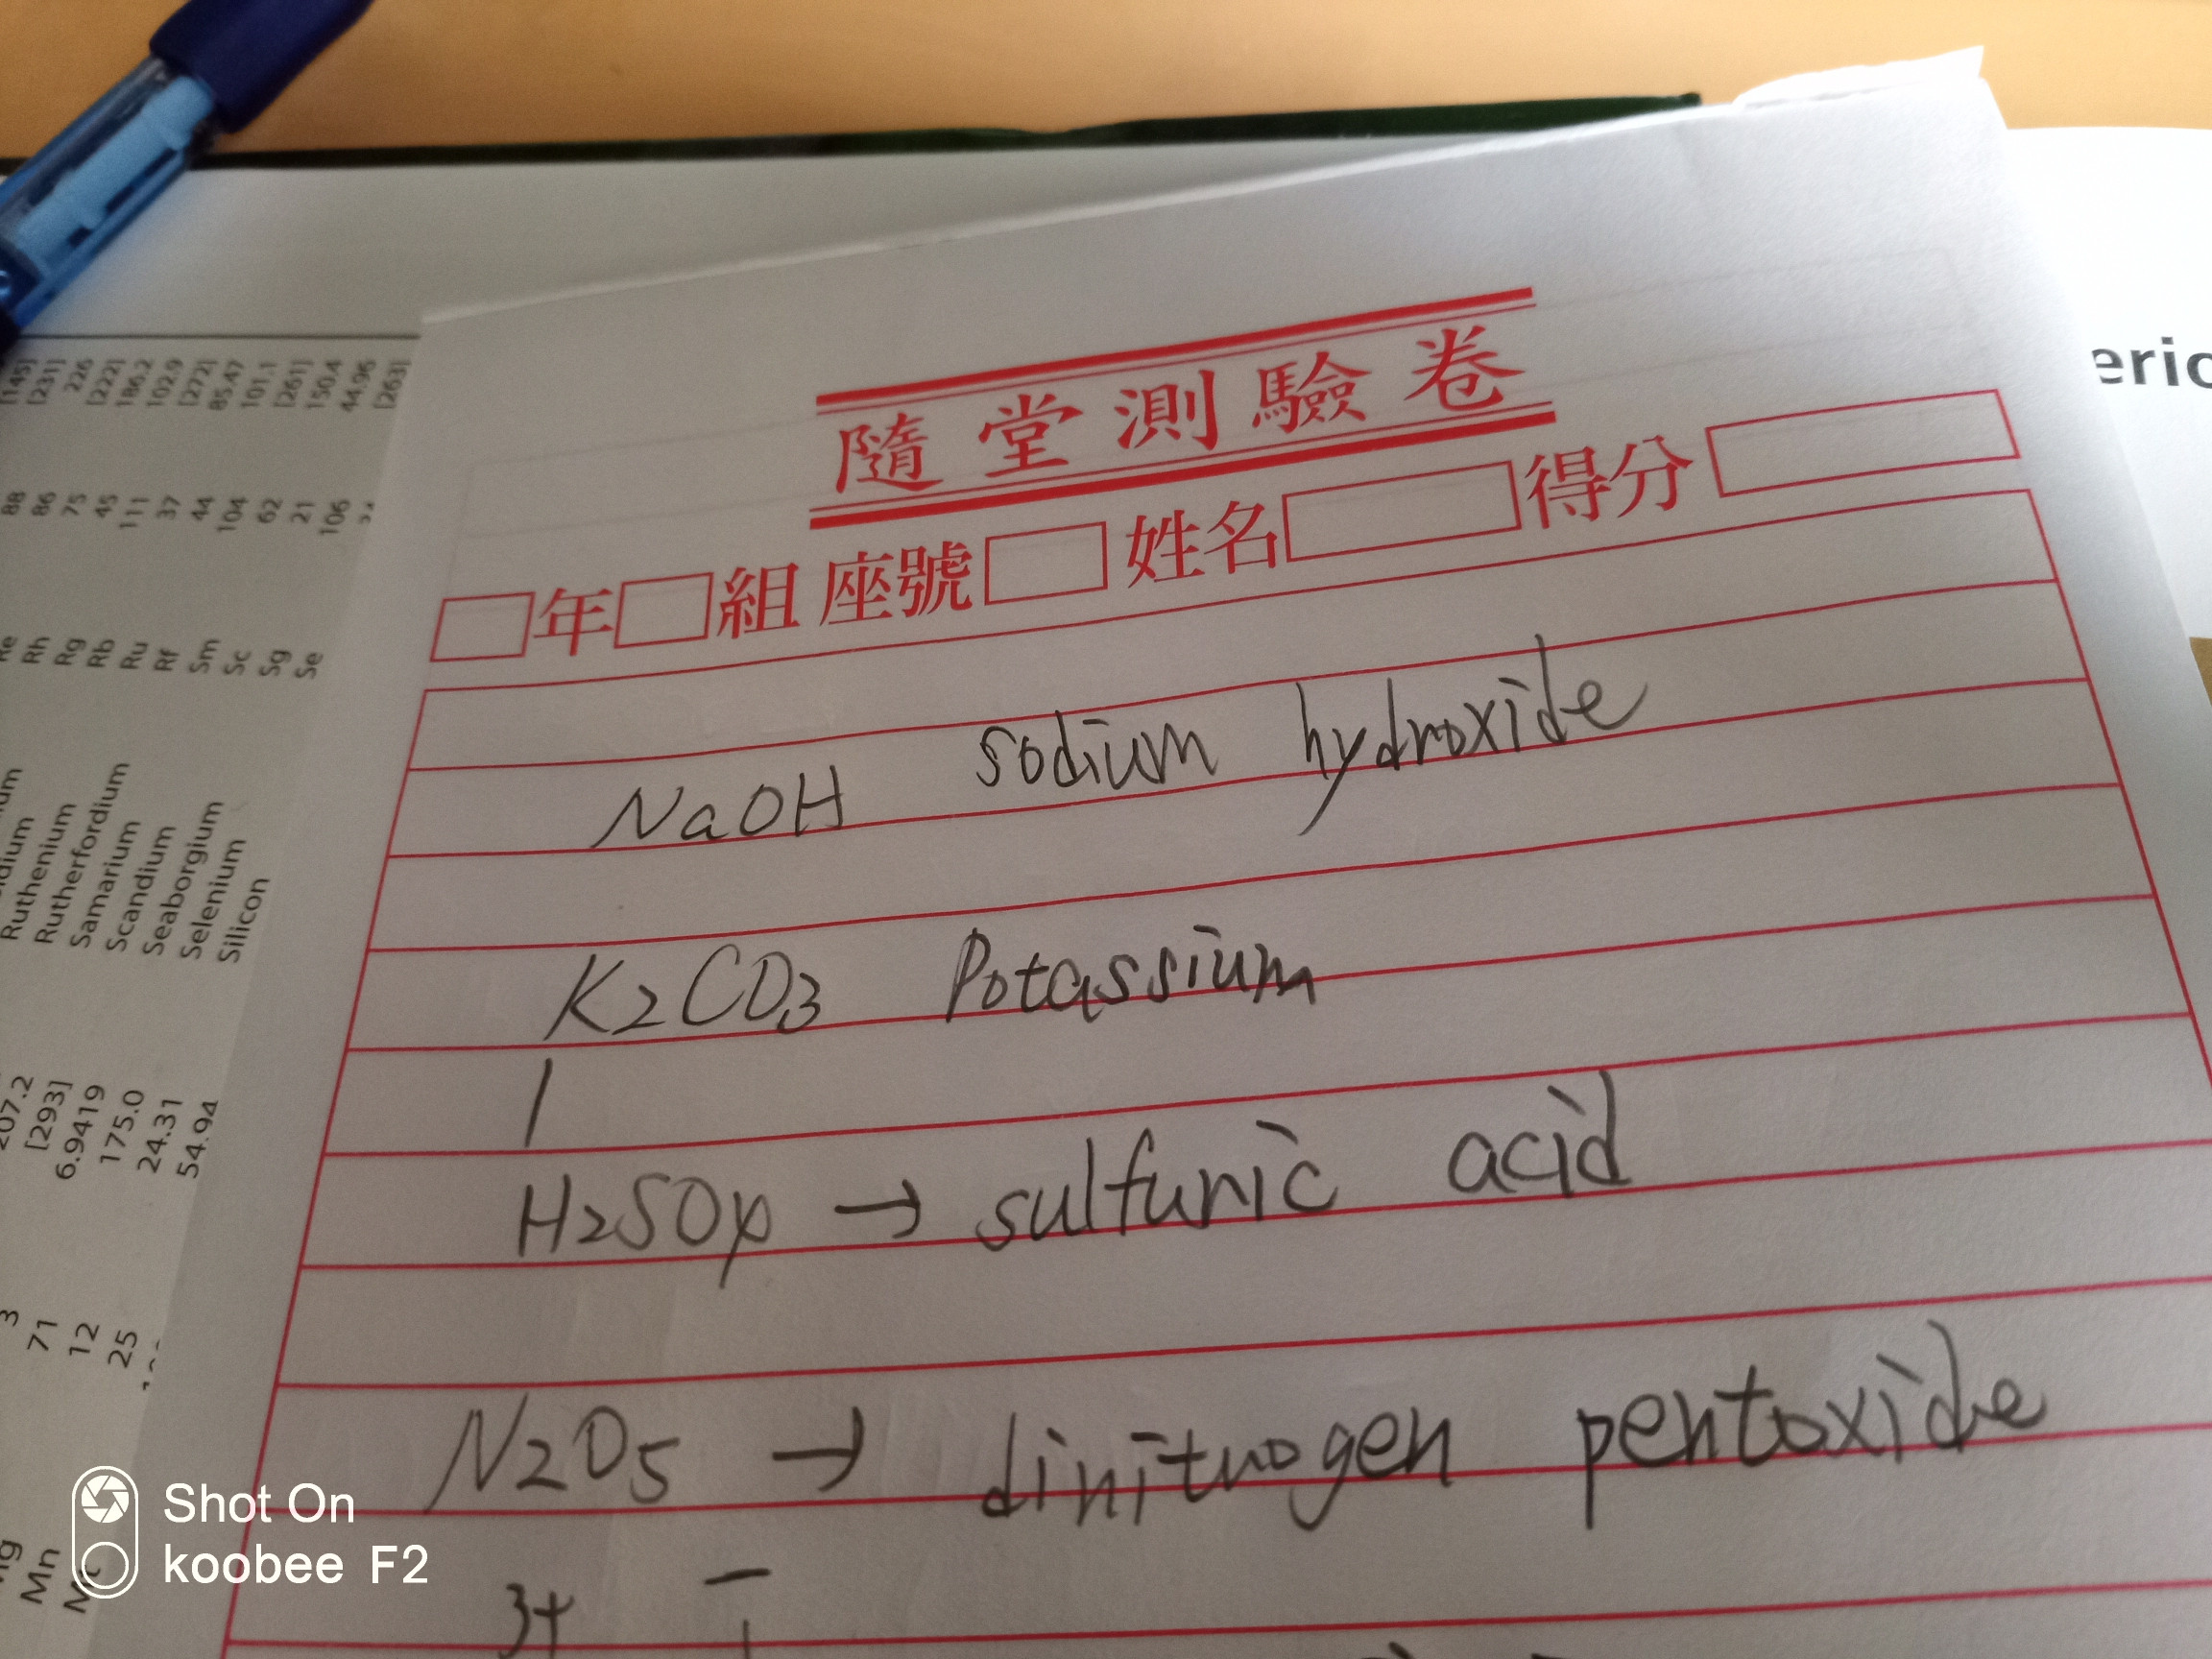 隨堂測驗卷
年 組 座號 姓名 得分
NaOH sodium hydroxide
K2CO3 Potassium
H2SO4 → sulfuric acid
N2O5 → dinitrogen pentoxide
3+ -
[145]
[231]
226
[222]
186.2
102.9
[272]
85.47
101.1
[261]
150.4
44.96
[263]
88
86
75
45
111
37
44
104
62
21
106
Re
Rh
Rg
Rb
Ru
Rf
Sm
Sc
Sg
Se
Ruthenium
Rutherfordium
Samarium
Scandium
Seaborgium
Selenium
Silicon
207.2
[293]
6.9419
175.0
24.31
54.94
3
71
12
25
Mn
Shot On
koobee F2